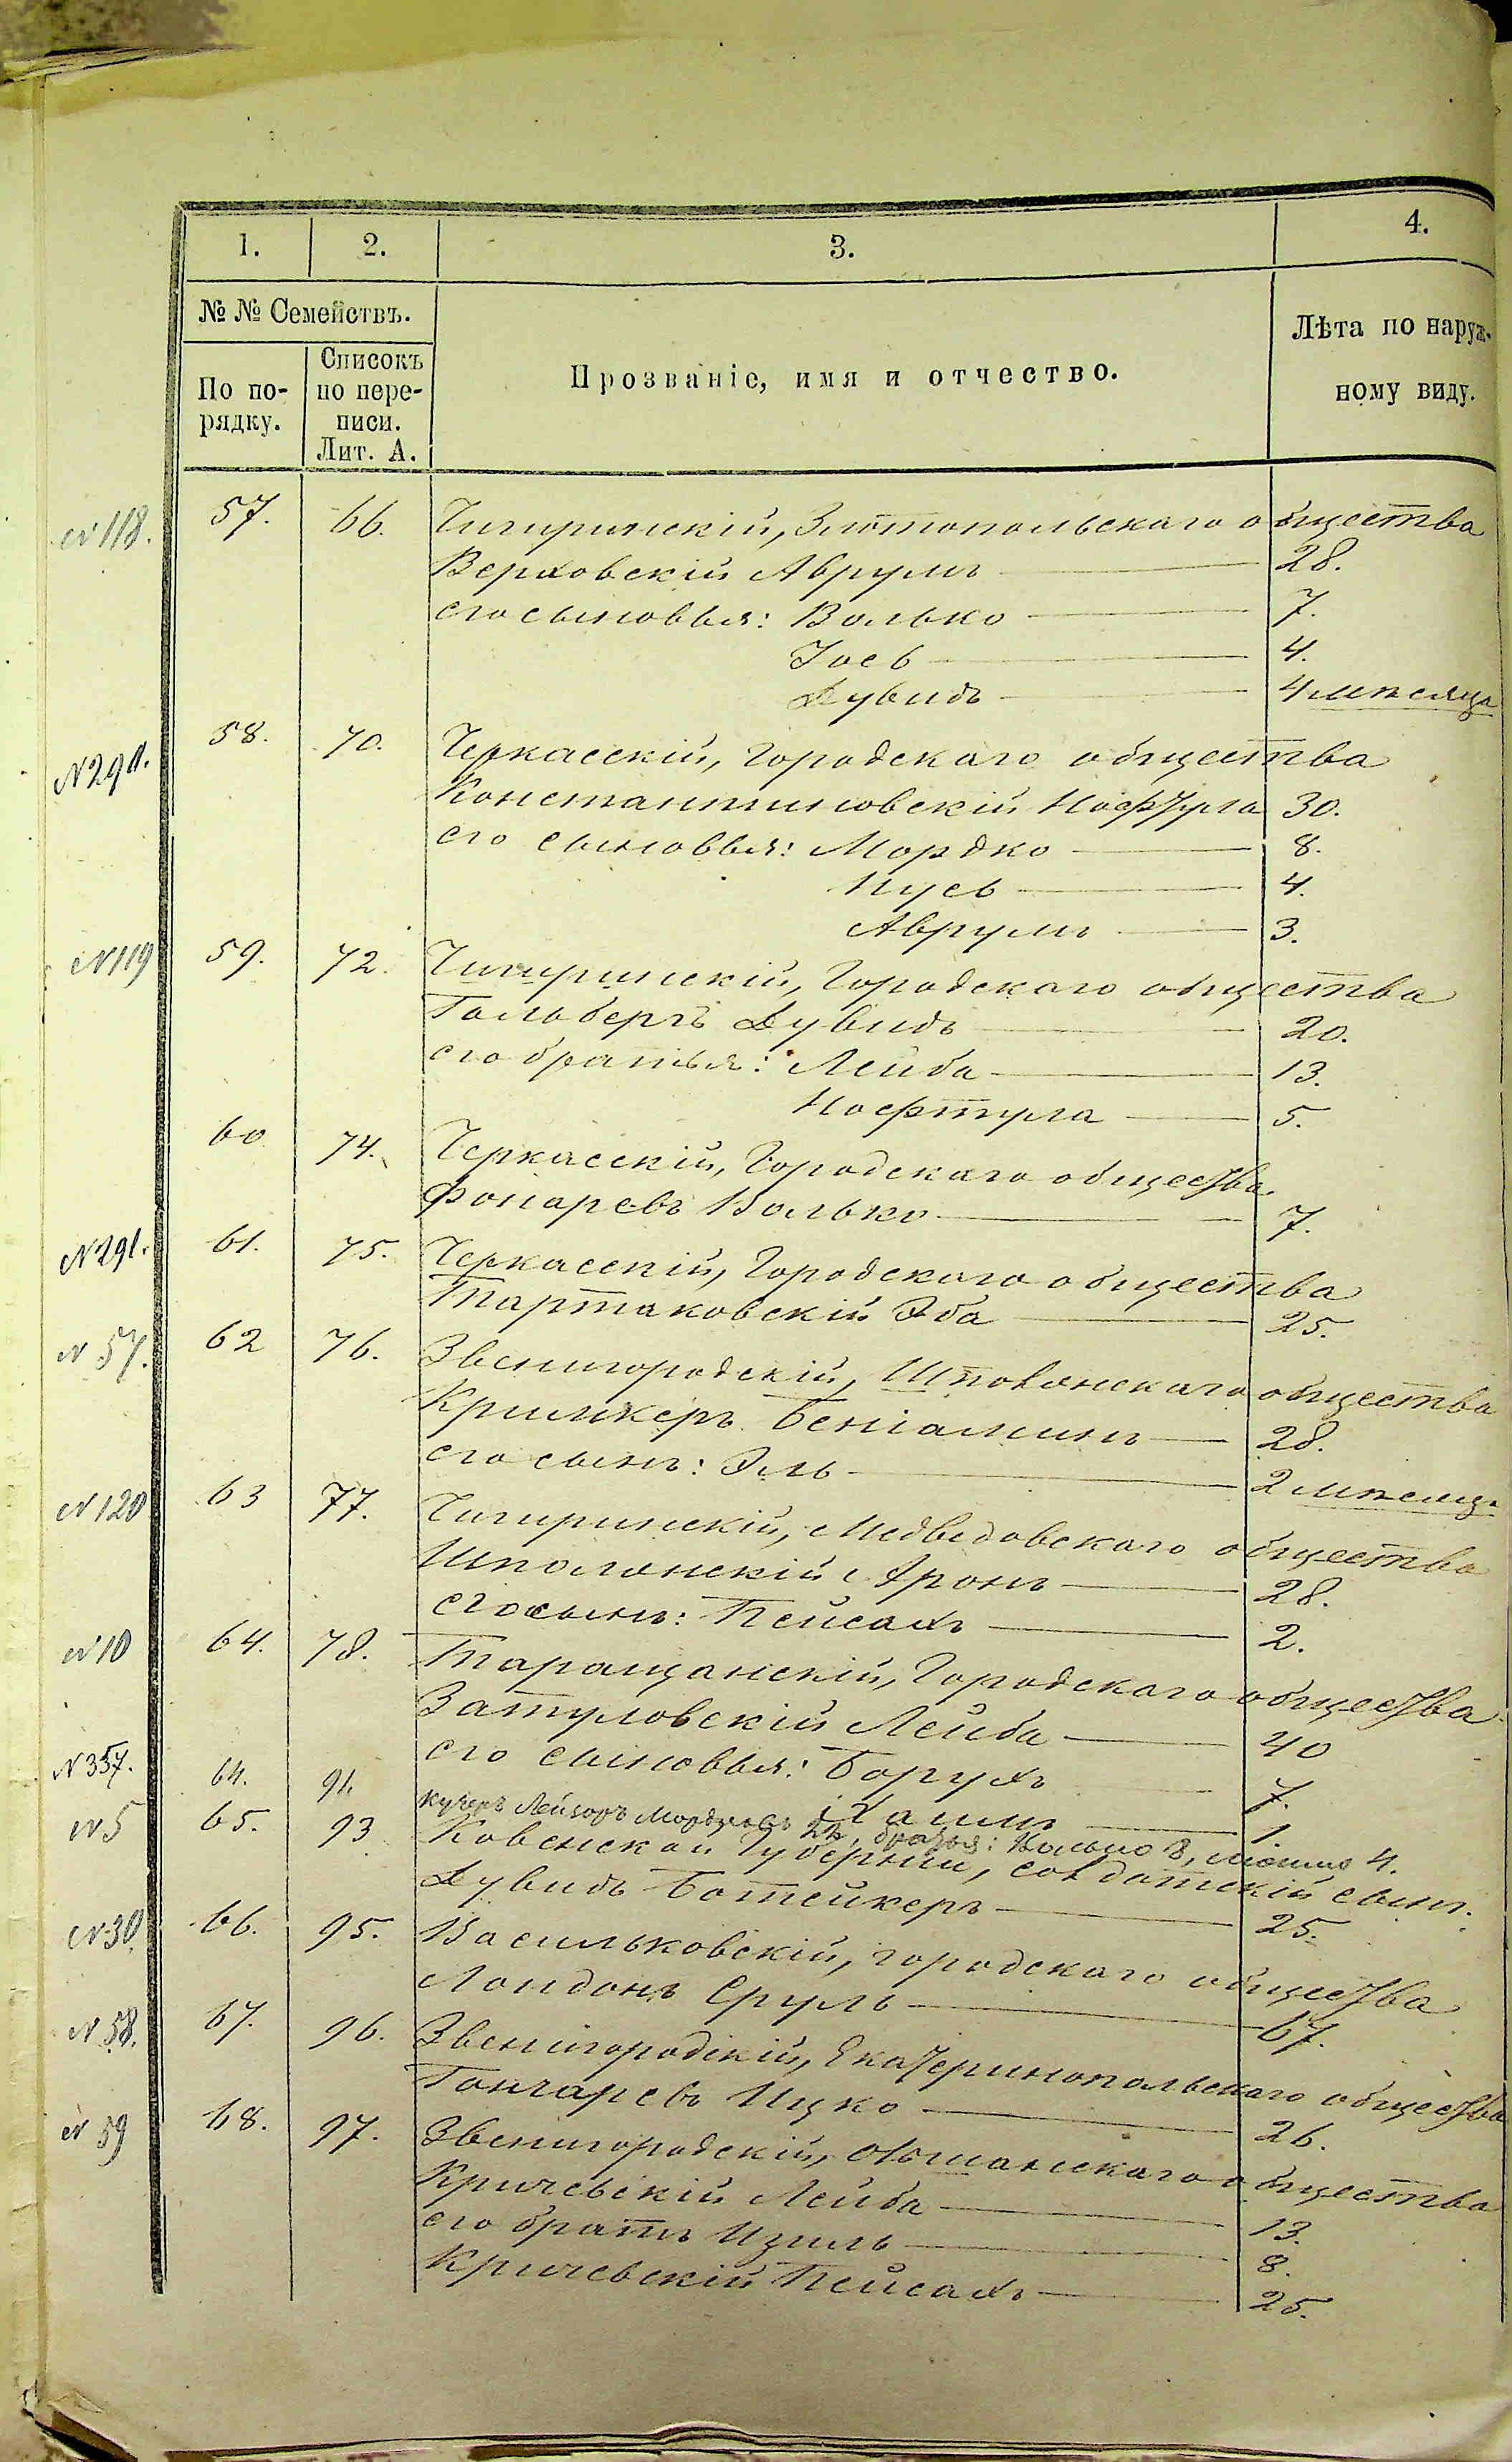 1. 2. 3. 4.
№ № Семействъ.
По по-
рядку.
Списокъ
по пере-
писи.
Лит. А.
Прозваніе, имя и отчество.
Лѣта по наруж-
ному виду.
№118. 57. 66. Чигиринскій, Златопольскаго общества
Верховскій Аврумъ 28.
его сыновья: Волько 7.
Іось 4.
Дувидъ 4 мѣсяца
№290. 58. 70. Черкасскій, Городскаго общества
Константиновскій Нос 30.
его сыновья: Мордко 8.
Нусь 4.
Аврумъ 3.
№119 59. 72. Чигиринскій, Городскаго общества
Гольбергъ Дувидъ 20.
его братья: Лейба 13.
Нафтула 5.
60 74. Черкасскій, Городскаго общества
Фонаревъ Волько 7.
№291. 61. 75. Черкасскій, Городскаго общества
Тартаковскій Эба 25.
№ 57. 62 76. Звенигородскій, Шполянскаго общества
Кримкеръ Беніаминъ 28.
его сынъ: Эль 2 мѣсяца
№120 63 77. Чигиринскій, Медведовскаго общества
Шполянскій Аронъ 28.
его сынъ: Пейсахъ 2.
№10 64. 78. Таращанскій, Городскаго общества
Затуловскій Лейба 40
его сыновья: Борухъ 7.
Хаимъ 1.
№357. 64. 91. Кучеръ Лейзоръ Мордковъ 22, братья: Волько 8, 4.
№5 65. 93 Ковенской Губерніи, солдатскій сынъ.
Дувидъ Ботейкеръ 25.
№30 66. 95. Васильковскій, городскаго общества
Лондонъ Сруль 67.
№58. 67. 96. Звенигородскій, Екатеринопольскаго общества
Гончаревъ Ицко 26.
№ 59 68. 97. Звенигородскій, Ольшанскаго общества
Кричевскій Лейба 13.
его братъ Изиль 8.
Кричевскій Пейсахъ 25.